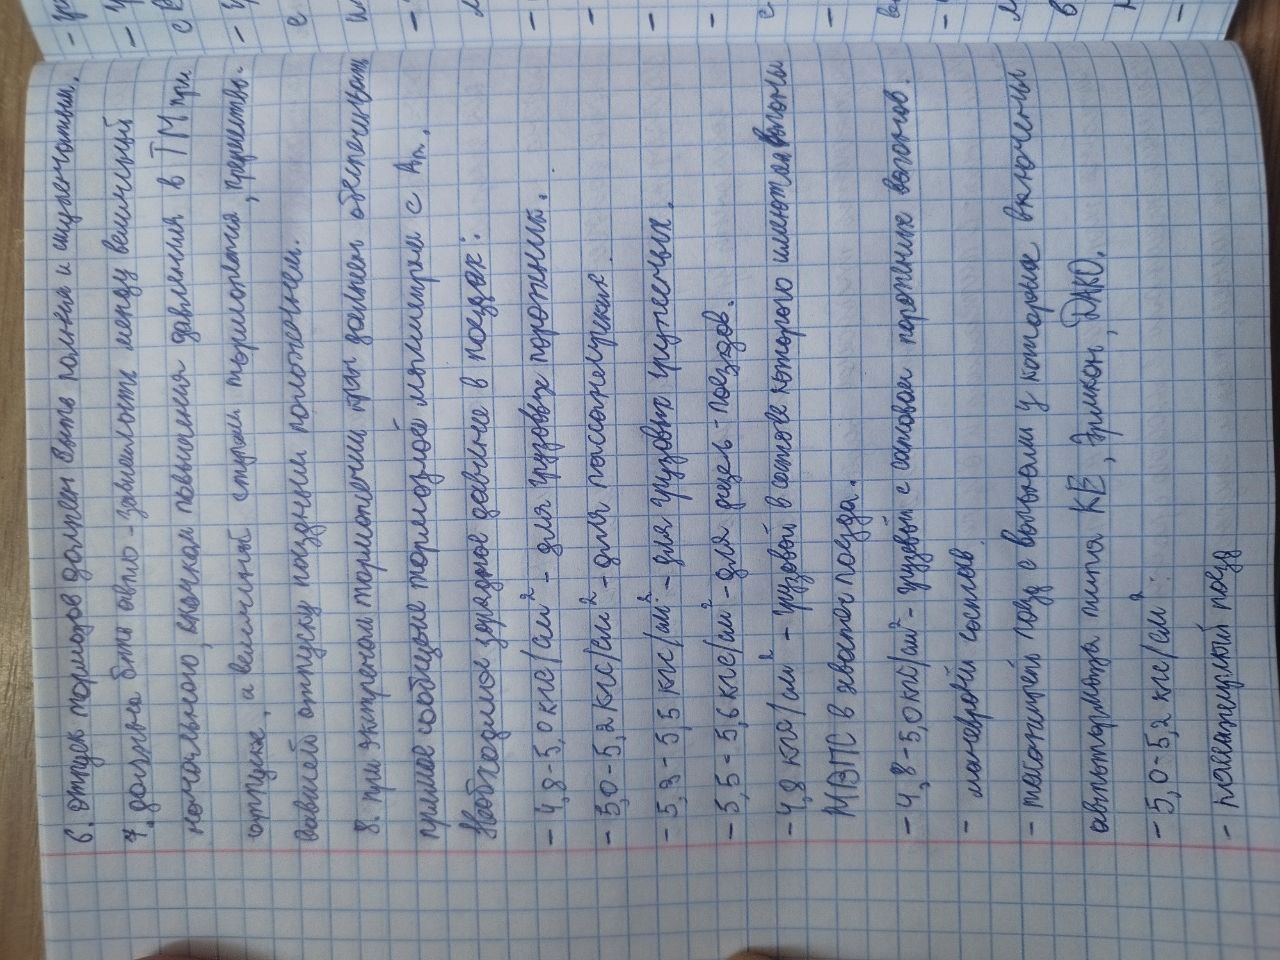 6. отпуск тормозов должен быть полным и ступенчатым.
7. должна быть авто-зависимость между величиной
начального, скачком повышения давления в ТМ при
отпуске, а величиной ступени торможения, предшество-
вавшей отпуску поездным положением.
8. при экстренном торможении кран должен обеспечивать
прямое сообщение тормозной магистрали с Ат.
Необходимое зарядное давление в поездах:
- 4,8-5,0 кгс/см² - для грузовых порожних.
- 5,0-5,2 кгс/см² - для пассажирских.
- 5,3-5,5 кгс/см² - для грузовых груженых.
- 5,5-5,6 кгс/см² - для рефр-поездов.
- 4,8 кгс/см² - грузовой в составе которого имеются вагоны
МВПС в хвосте поезда.
- 4,8-5,0 кгс/см² - грузовой с составом порожних вагонов.
- маневровый состав.
- пассажирский поезд с вагонами у которых включены
автотормоза типа КЕ, Эрликон, ДАКО.
- 5,0-5,2 кгс/см²:
- пассажирский поезд